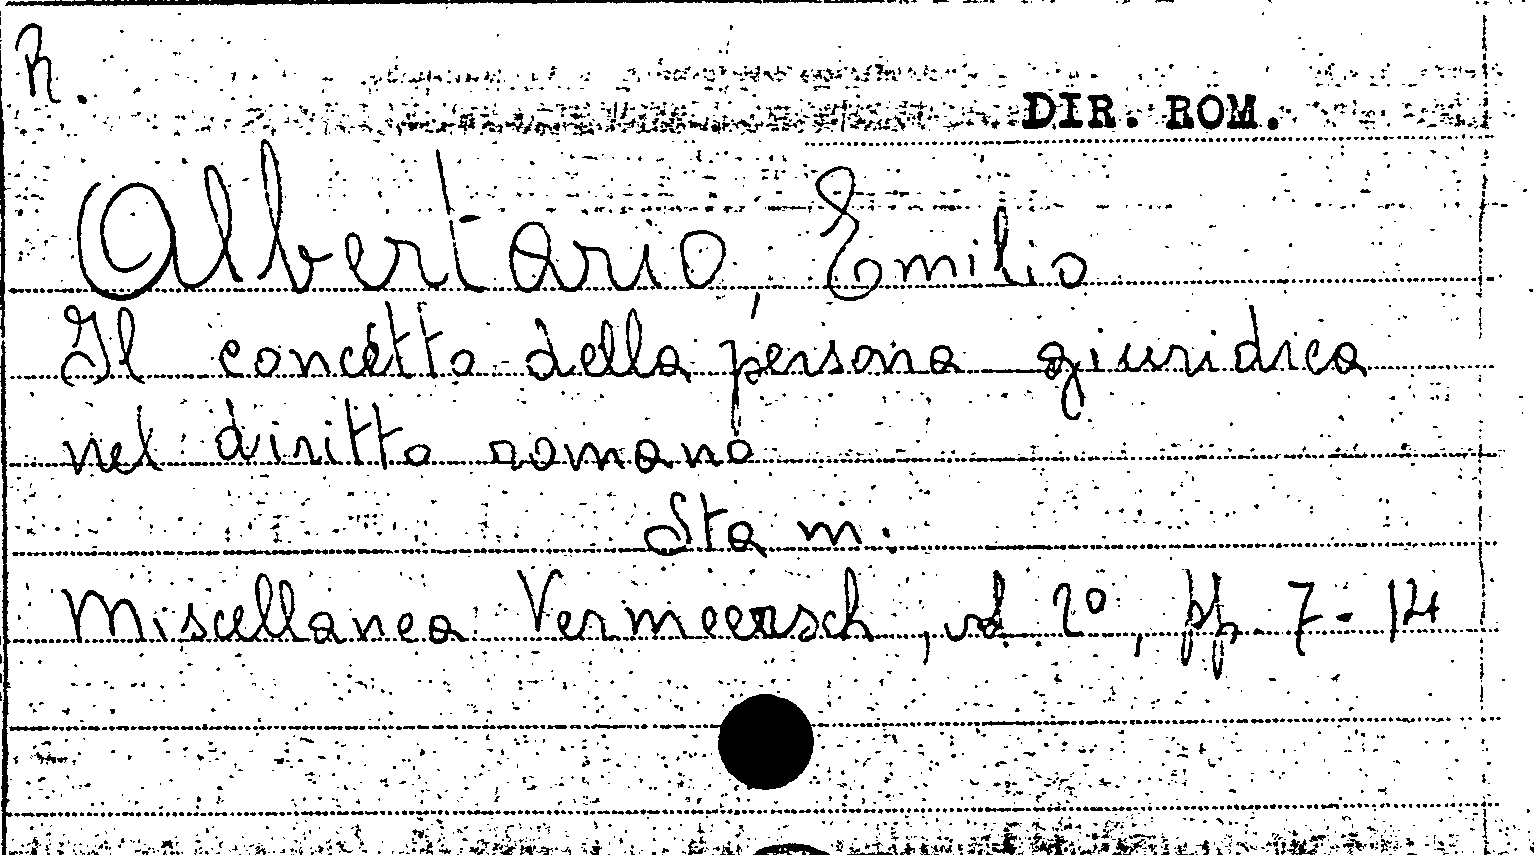 R.
DIR. ROM.
Albertario, Emilio
Il concetto della persona giuridica
nel diritto romano
Sta m.
Miscellanea Vermeersch, vol 2º, pp. 7-14